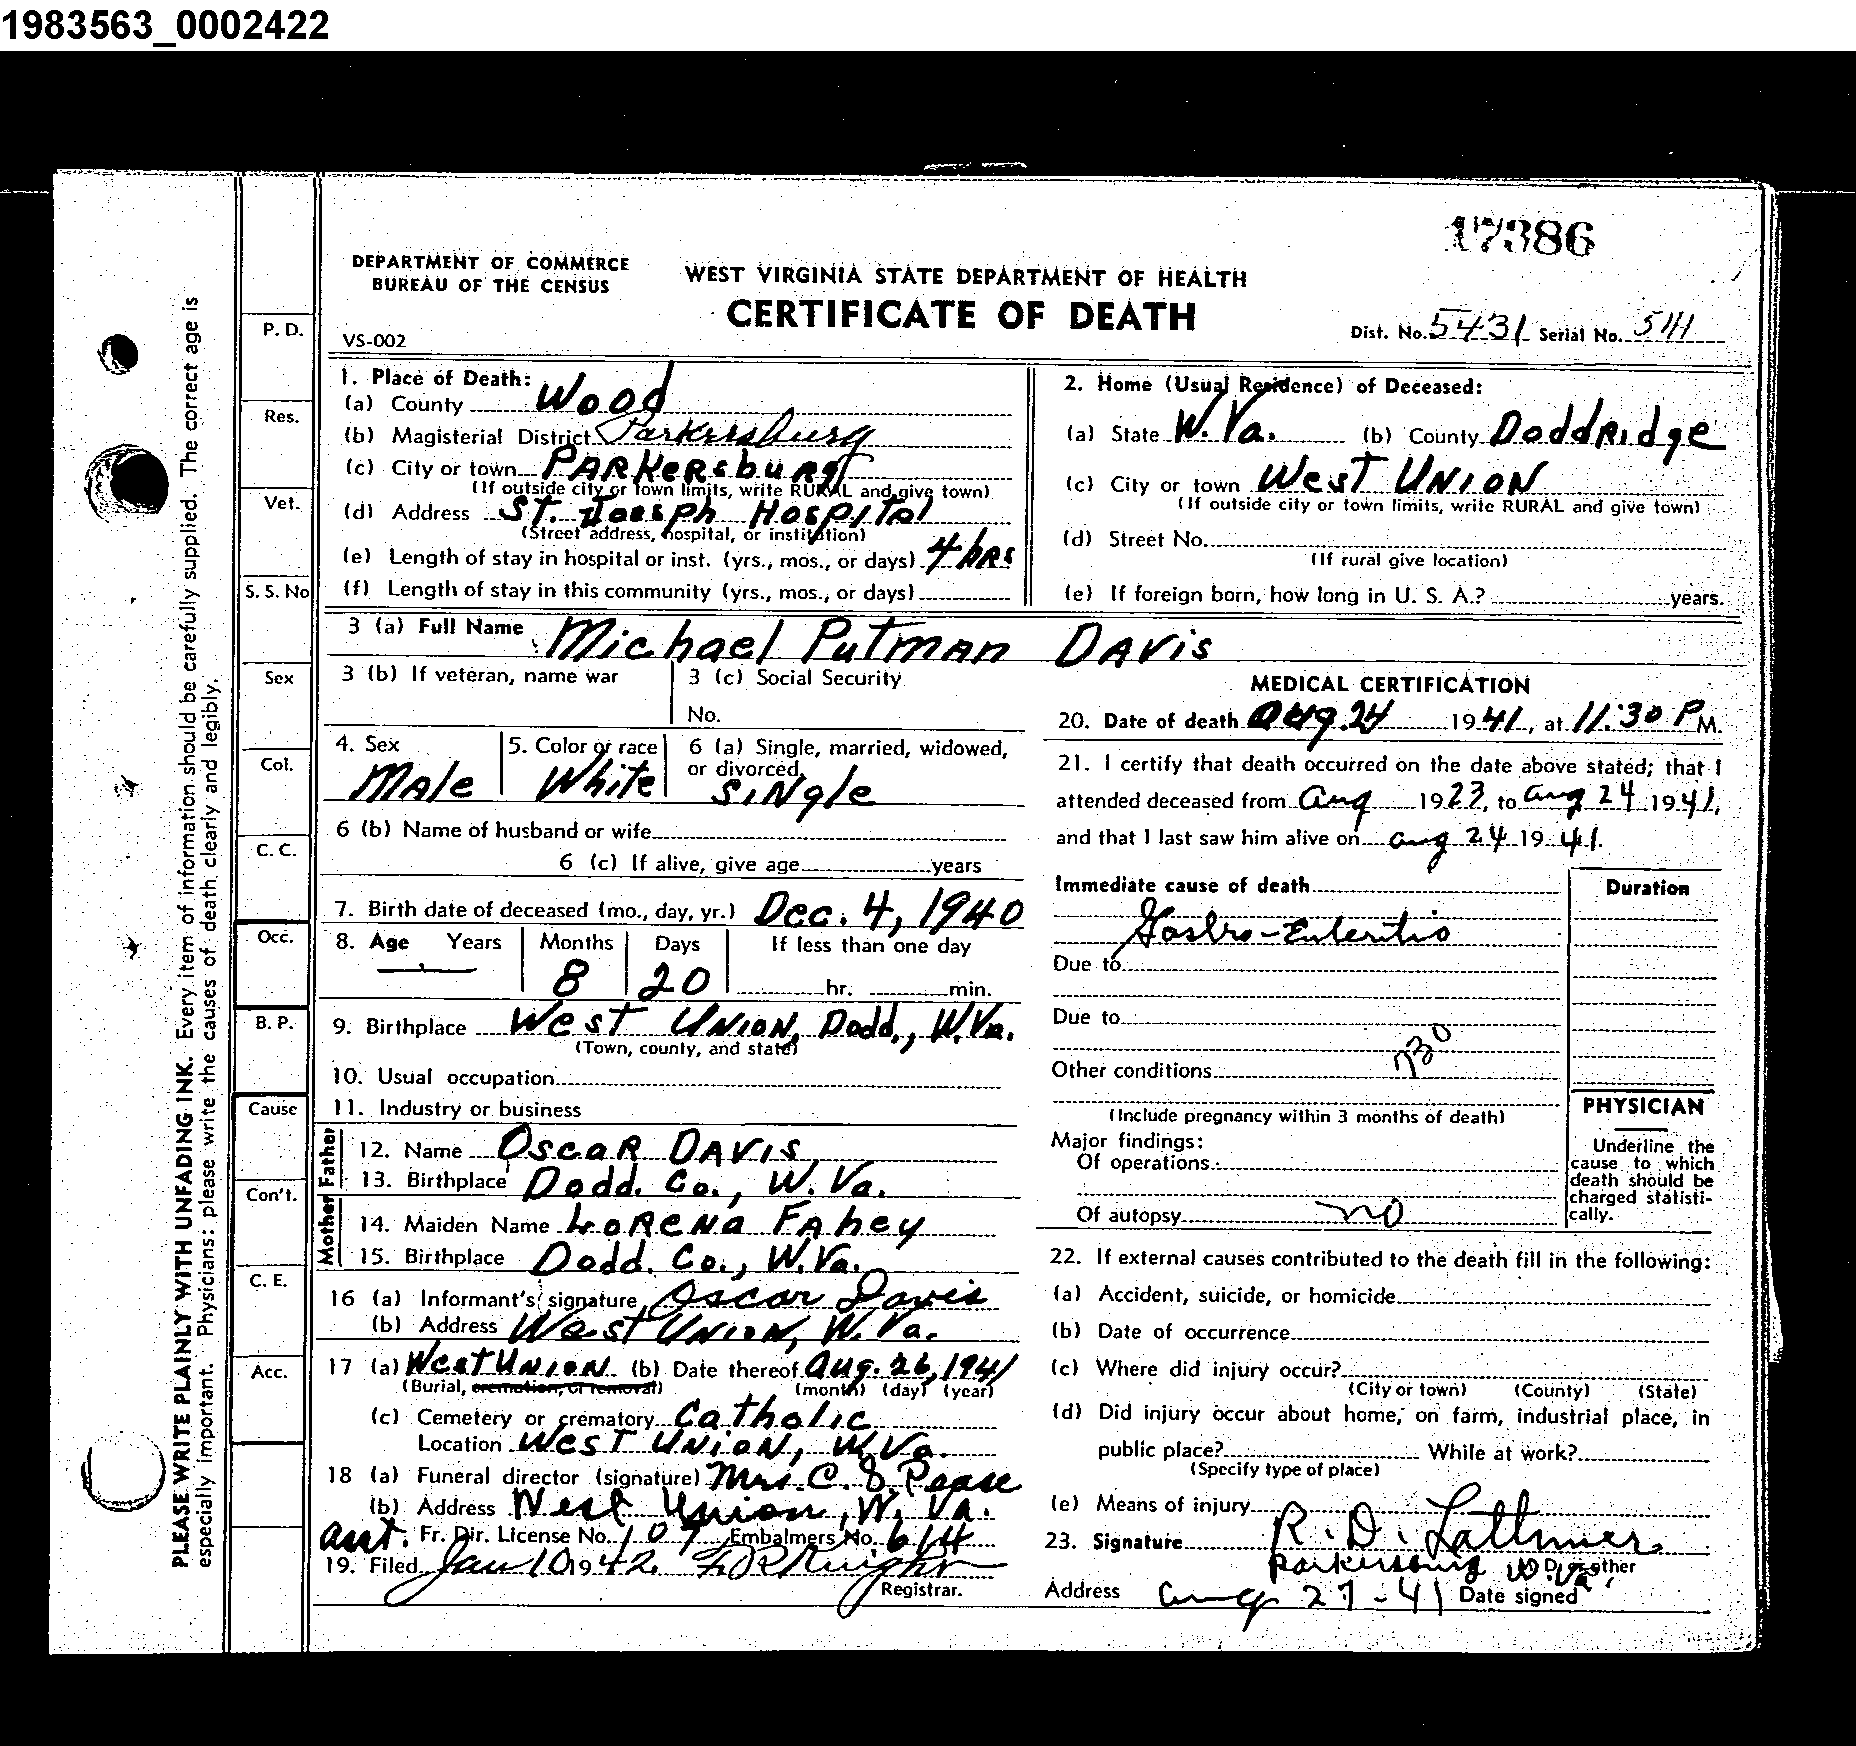 1983563_0002422
17386
DEPARTMENT OF COMMERCE
BUREAU OF THE CENSUS
WEST VIRGINIA STATE DEPARTMENT OF HEALTH
CERTIFICATE OF DEATH
VS-002
Dist. No. 5431 Serial No. 511
PLEASE WRITE PLAINLY WITH UNFADING INK. Every item of information should be carefully supplied. The correct age is
especially important. Physicians: please write the causes of death clearly and legibly.
P. D.
Res.
Vet.
S. S. No
Sex
Col.
C. C.
Occ.
B. P.
Cause
Con't.
C. E.
Acc.
1. Place of Death:
(a) County Wood
(b) Magisterial District Parkersburg
(c) City or town PARKersburg
(If outside city or town limits, write RURAL and give town)
(d) Address ST. Joesph Hospital
(Street address, hospital, or institution)
(e) Length of stay in hospital or inst. (yrs., mos., or days) 4 hrs
(f) Length of stay in this community (yrs., mos., or days)
2. Home (Usual Residence) of Deceased:
(a) State W. Va. (b) County Doddridge
(c) City or town West Union
(If outside city or town limits, write RURAL and give town)
(d) Street No.
(If rural give location)
(e) If foreign born, how long in U. S. A.? years.
3 (a) Full Name Michael Putman Davis
3 (b) If veteran, name war
3 (c) Social Security
No.
4. Sex
Male
5. Color or race
White
6 (a) Single, married, widowed,
or divorced
Single
6 (b) Name of husband or wife
6 (c) If alive, give age years
7. Birth date of deceased (mo., day, yr.) Dec. 4, 1940
8. Age Years Months Days If less than one day
— 8 20 hr. min.
9. Birthplace West Union, Dodd., W. Va.
(Town, county, and state)
10. Usual occupation
11. Industry or business
Father
12. Name Oscar Davis
13. Birthplace Dodd. Co., W. Va.
Mother
14. Maiden Name Lorena Fahey
15. Birthplace Dodd. Co., W. Va.
16 (a) Informant's signature Oscar Davis
(b) Address West Union, W. Va.
17 (a) West Union (b) Date thereof Aug. 26, 1941
(Burial, cremation, or removal) (month) (day) (year)
(c) Cemetery or crematory Catholic
Location West Union, W. Va.
18 (a) Funeral director (signature) Mrs. C. S. Pease
(b) Address West Union, W. Va.
Fr. Dir. License No. 107 Embalmers No. 614
19. Filed Jan 10 1942
Registrar.
MEDICAL CERTIFICATION
20. Date of death Aug. 24 1941, at 11:30 P M.
21. I certify that death occurred on the date above stated; that I
attended deceased from Aug 1923, to Aug 24 1941,
and that I last saw him alive on Aug 24 1941.
Immediate cause of death
Gastro-Enteritis
Duration
Due to
Due to
730
Other conditions
(Include pregnancy within 3 months of death)
Major findings:
Of operations
Of autopsy no
PHYSICIAN
Underline the
cause to which
death should be
charged statisti-
cally.
22. If external causes contributed to the death fill in the following:
(a) Accident, suicide, or homicide
(b) Date of occurrence
(c) Where did injury occur?
(City or town) (County) (State)
(d) Did injury occur about home, on farm, industrial place, in
public place? While at work?
(Specify type of place)
(e) Means of injury
23. Signature R. D.
Parkersburg W. Va. M. D. or other
Address Aug 27-41 Date signed